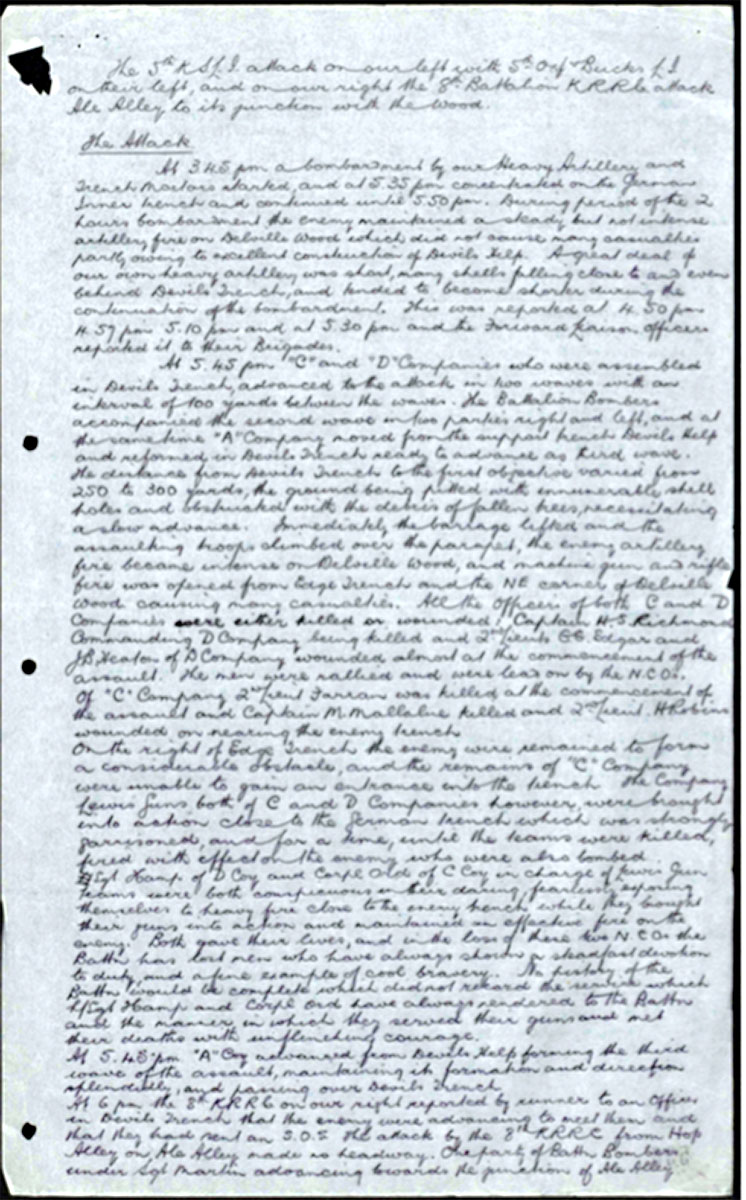 The 5th KSLI attack on our left with 5th Oxf & Bucks L I
on their left, and on our right the 8th Battalion KRRC attack
Ale Alley to its junction with the Wood.
The Attack
At 3.45 pm a bombardment by our Heavy Artillery and
Trench Mortars started, and at 5.35 pm concentrated on the German
Inner trench and continued until 5.50 pm. During period of the 2
hours bombardment the enemy maintained a steady but not intense
artillery fire on Delville Wood which did not cause many casualties
partly owing to excellent construction of Devils Help. A great deal of
our own heavy artillery was short, many shells falling close to and even
behind Devils Trench, and tended to become shorter during the
continuation of the bombardment. This was reported at 4.50 pm
4.57 pm 5.10 pm and at 5.30 pm and the Forward Liaison officers
reported it to their Brigades.
At 5.45 pm "C" and "D" Companies who were assembled
in Devils Trench, advanced to the attack in two waves with an
interval of 100 yards between the waves. The Battalion Bombers
accompanied the second wave in two parties right and left, and at
the same time "A" Company moved from the support trench Devils Help
and reformed in Devils Trench ready to advance as third wave.
The distance from Devils Trench to the first objective varied from
250 to 300 yards, the ground being pitted with innumerable shell
holes and obstructed with the debris of fallen trees, necessitating
a slow advance. Immediately the barrage lifted and the
assaulting troops climbed over the parapet, the enemy artillery
fire became intense on Delville Wood, and machine gun and rifle
fire was opened from Edge Trench and the NE corner of Delville
Wood causing many casualties. All the Officers of both C and D
Companies were either killed or wounded; Captain H.S Richmond
Commanding D Company being killed and 2nd Lieuts Edgar and
J.B. Heaton of D Company wounded almost at the commencement of the
assault. The men were rallied and were lead on by the N.C.Os.
Of "C" Company 2nd Lieut Farran was killed at the commencement of
the assault and Captain M. Mallalue killed and 2nd Lieut. H Robins
wounded on nearing the enemy trench
On the right of Edge Trench the enemy wire remained to form
a considerable obstacle, and the remains of "C" Company
were unable to gain an entrance into the trench The Company
Lewis Guns, both of C and D Companies however, were brought
into action close to the German trench which was strongly
garrisoned, and for a time, until the teams were killed,
fired with effect on the enemy who were also bombed.
Sgt Hamp of D Coy and Corpl Ord of C Coy in charge of Lewis Gun
teams were both conspicuous in their daring, fearlessly exposing
themselves to heavy fire close to the enemy trench while they brought
their guns into action and maintained an effective fire on the
enemy. Both gave their lives, and in the loss of these two N.C.Os the
Battn has lost men who have always shown a steadfast devotion
to duty, and a fine example of cool bravery. No history of the
Battn would be complete which did not record the service which
L/Sgt Hamp and Corpl Ord have always rendered to the Battn
and the manner in which they served their guns and met
their deaths with unflinching courage.
At 5.45 pm "A" Coy advanced from Devils Help forming the third
wave of the assault, maintaining its formation and direction
splendidly, and passing over Devils Trench
At 6 pm the 8th KRRC on our right reported by runner to an Officer
in Devils Trench that the enemy were advancing to meet them and
that they had sent an S.O.S The attack by the 8th KRRC from Hop
Alley on Ale Alley made no headway. One party of Battn Bombers
under Sgt Martin advancing towards the junction of Ale Alley